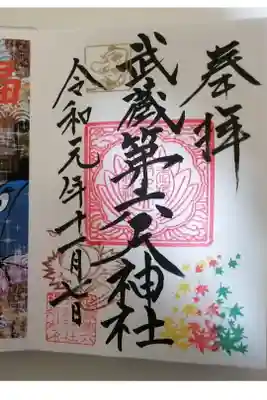 奉拝
武蔵第六天神社
令和元年十一月七日